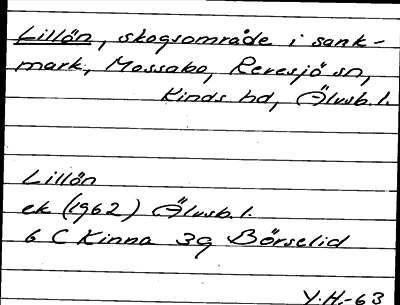 Lillön, skogsområde i sank-
mark, Mossabo, Revesjö sn,
Kinds hd, Älvsb. l.
Lillön
ek (1962) Älvsb. l.
6 C Kinna 3g Börselid
Y.H.-63